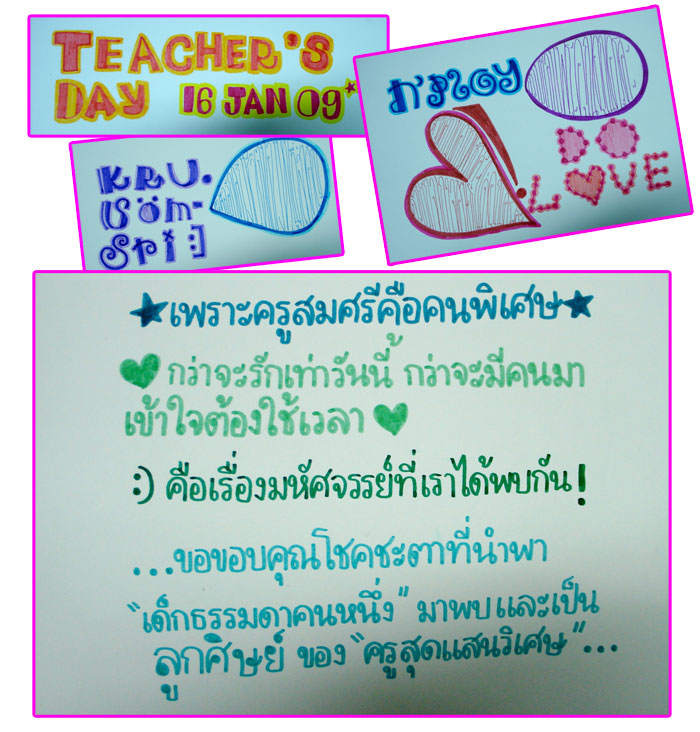 TEACHER'S
DAY 16 JAN 09*
N'PLOY
DO
LOVE
KRU.
SOM-
SRI :]
★เพราะครูสมศรีคือคนพิเศษ★
กว่าจะรักเท่าวันนี้ กว่าจะมีคนมา
เข้าใจต้องใช้เวลา
:) คือเรื่องมหัศจรรย์ที่เราได้พบกัน!
...ขอขอบคุณโชคชะตาที่นำพา
"เด็กธรรมดาคนหนึ่ง" มาพบและเป็น
ลูกศิษย์ ของ "ครูสุดแสนวิเศษ"...